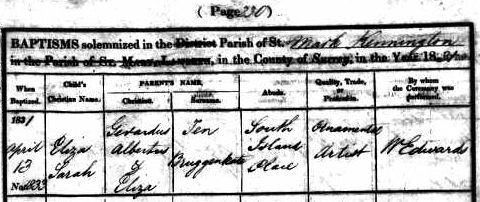 ( Page 230 )
BAPTISMS solemnized in the District Parish of St. Mark Kennington
in the Parish of St. Mary, Lambeth, in the County of Surrey, in the Year 18
When Baptized. Child's Christian Name. PARENT'S NAME. Christian. Surname. Abode. Quality, Trade, or Profession. By whom the Ceremony was performed.
1831 Gerardus Ten South Ornamental
April Eliza Albertus Bruggenkate Island Artist W Edwards
13 Sarah & Place
No. 1833 Eliza